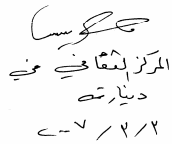 المركز الثقافي في
دينارته
٢٠٠٧/٣/٣